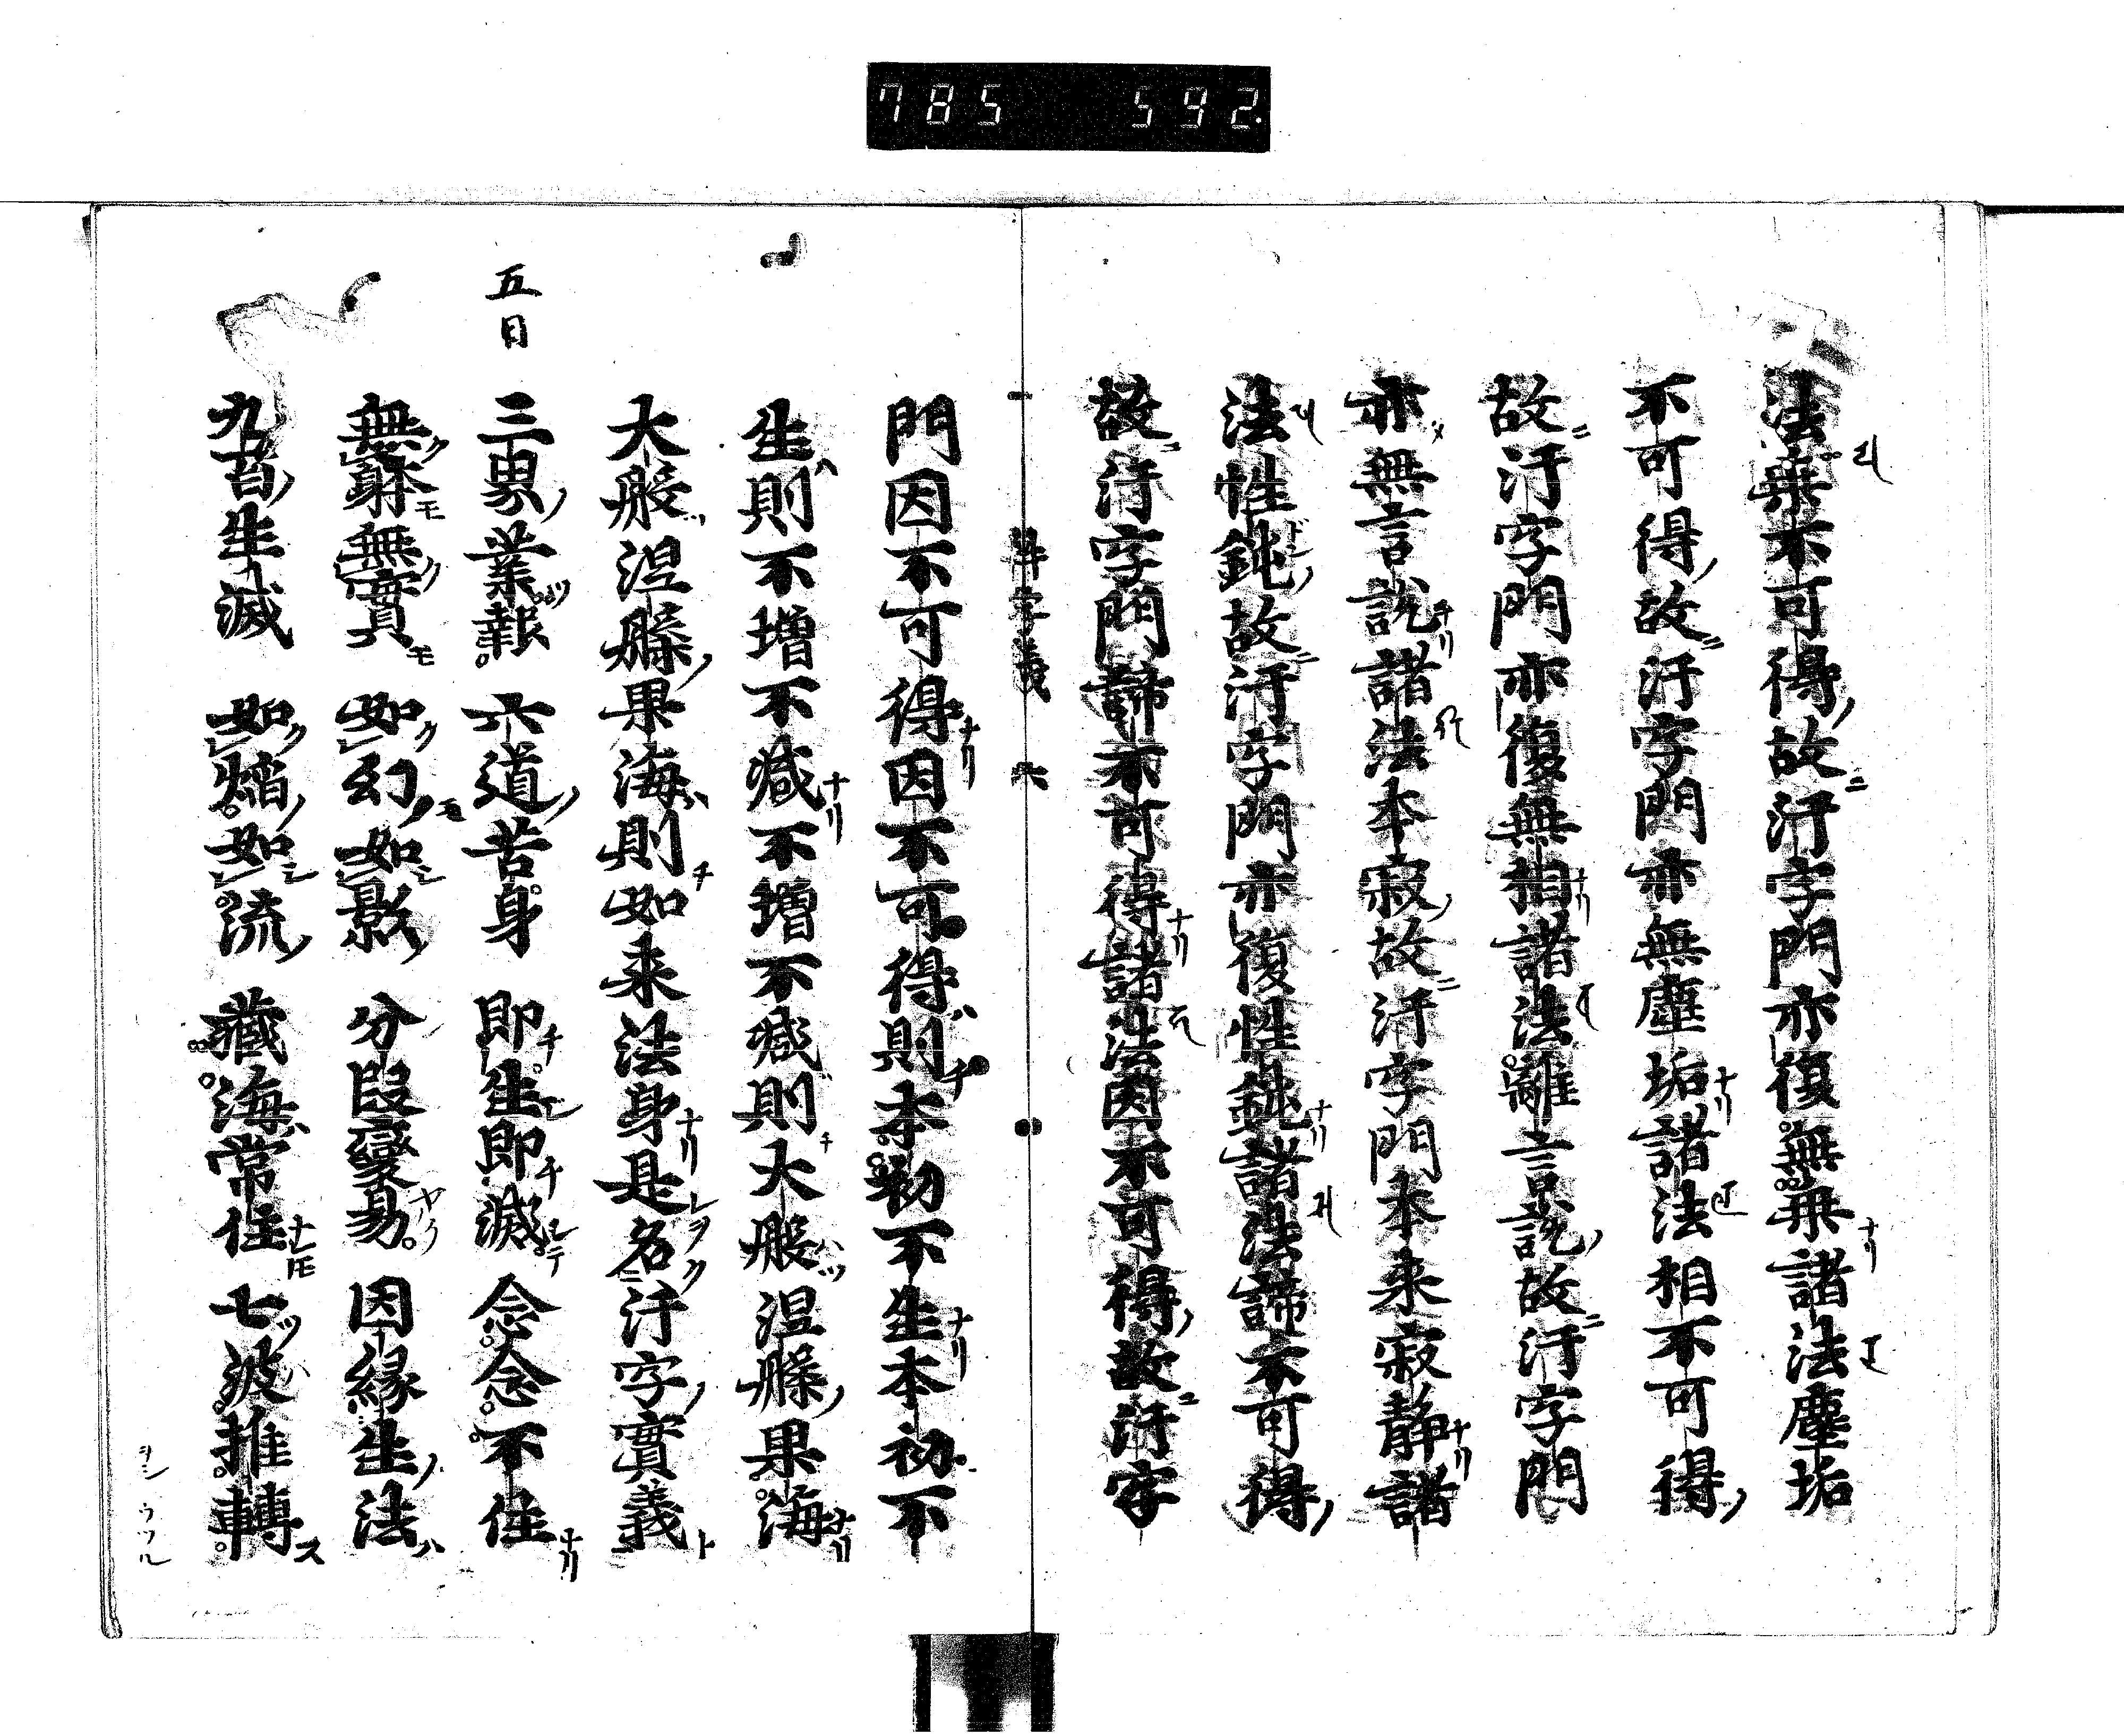 785 592.
法無不可得故汙字門亦復無無諸法塵垢
不可得故汙字門亦無塵垢諸法相不可得
故汙字門亦復無相諸法離言說故汙字門
亦無言說諸法本寂故汙字門本来寂靜諸
法性鈍故汙字門亦復性鈍諸法諦不可得
故汙字門諦不可得諸法因不可得故汙字
吽字義 六
門因不可得因不可得則本初不生本初不
生則不增不減不增不減則大般涅槃果海
大般涅槃果海則如来法身是名汙字實義
五日
三界業報 六道苦身 即生即滅 念念不住
無躰無實 如幻如影 分段變易 因縁生法
如焔如流 藏海常住 七波推轉
ヲシ ウツル